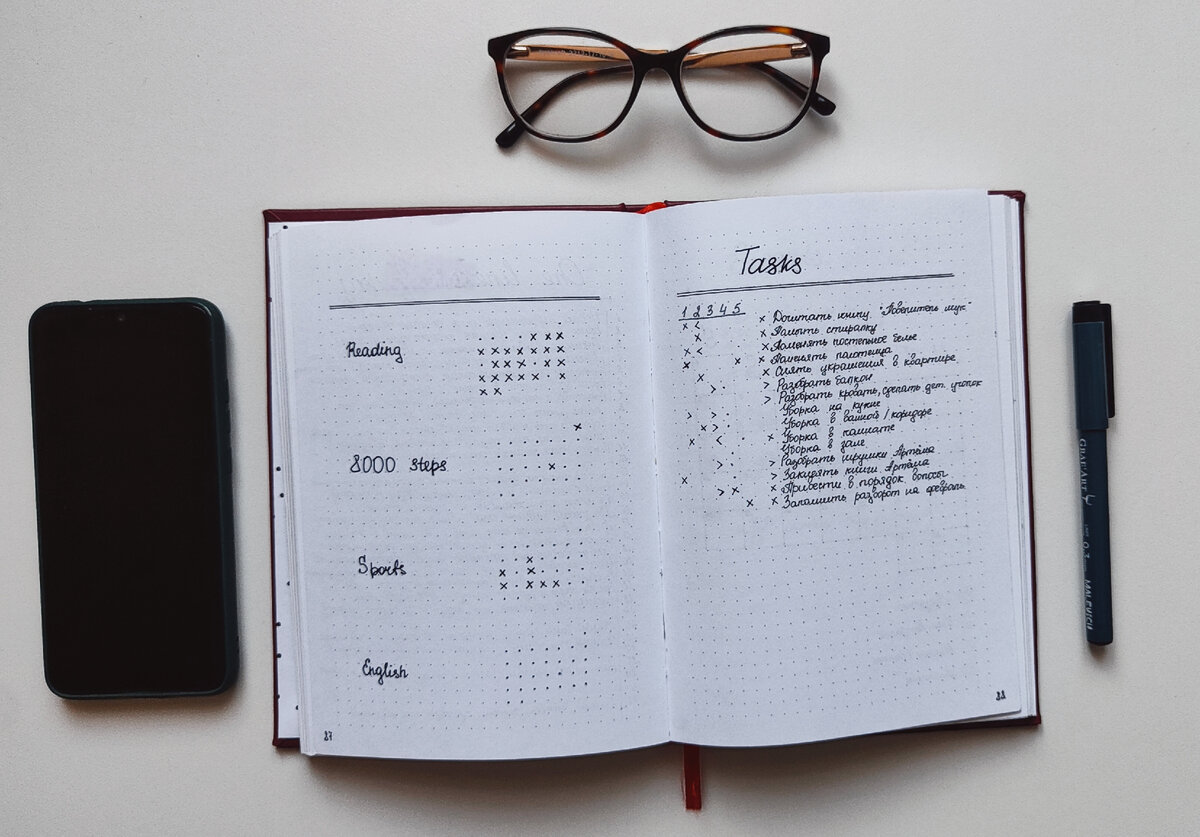 Reading
8000 steps
Sports
English
87
Tasks
1 2 3 4 5
x Дочитать книгу "Повелитель мух"
x Помыть стиралку
x Поменять постельное белье
x Поменять полотенца
x Снять украшения в квартире
> Разобрать балкон
> Разобрать кровать, сделать дет. уголок
Уборка на кухне
Уборка в ванной / коридоре
x Уборка в комнате
Уборка в зале
> Разобрать игрушки Артёма
> Закупить книги Артёма
x Привести в порядок волосы
x Заполнить разворот на февраль
88
GRAF'ART
0.3
MALEVICH